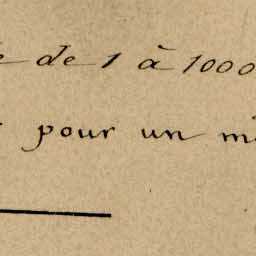 de 1 à 1000
pour un